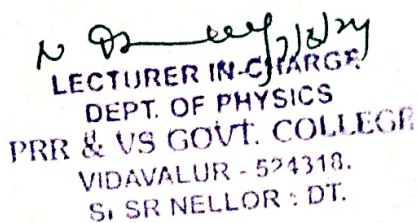 LECTURER IN-CHARGE
DEPT. OF PHYSICS
PRR & VS GOVT. COLLEGE
VIDAVALUR - 524318.
SR NELLOR : DT.